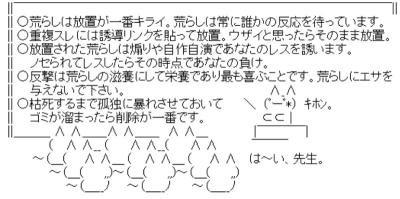 ○荒らしは放置が一番キライ。荒らしは常に誰かの反応を待っています。
○重複スレには誘導リンクを貼って放置。ウザイと思ったらそのまま放置。
○放置された荒らしは煽りや自作自演であなたのレスを誘います。
ノセられてレスしたらその時点であなたの負け。
○反撃は荒らしの滋養にして栄養であり最も喜ぶことです。荒らしにエサを
与えないで下さい。
○枯死するまで孤独に暴れさせておいて
ゴミが溜まったら削除が一番です。
キホン。
は～い、先生。